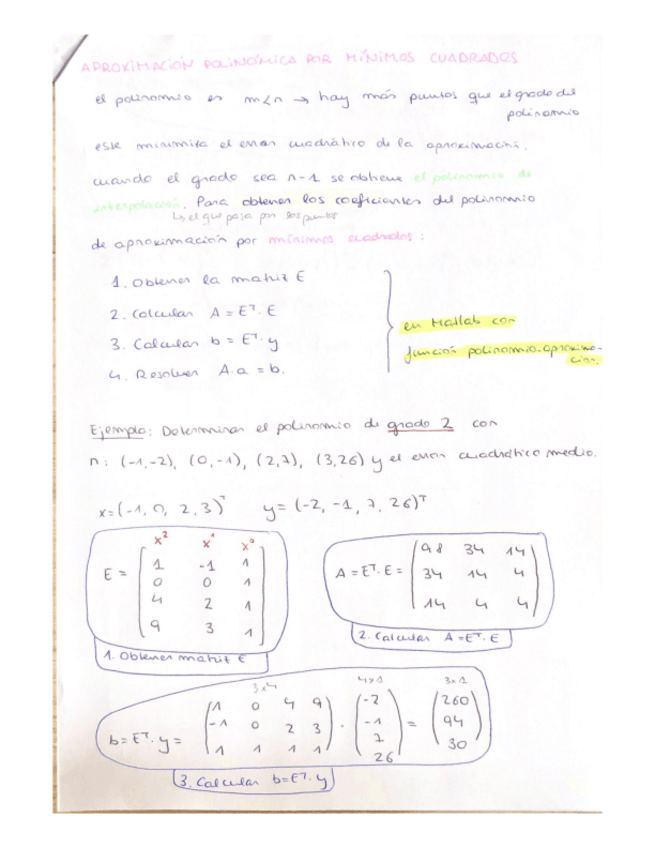 APROXIMACIÓN POLINÓMICA POR MÍNIMOS CUADRADOS
el polinomio es m<n → hay más puntos que el grado del
polinomio
este minimiza el error cuadrático de la aproximación.
cuando el grado sea n-1 se obtiene el polinomio de
interpolación. Para obtener los coeficientes del polinomio
↳ el que pasa por los puntos
de aproximación por mínimos cuadrados:
1. Obtener la matriz E
2. Calcular A = Eᵀ·E
3. Calcular b = Eᵀ·y
4. Resolver A·a = b.
en Matlab con
función polinomio-aproxima-
ción.
Ejemplo: Determinar el polinomio de grado 2 con
n: (-1,-2), (0,-1), (2,7), (3,26) y el error cuadrático medio.
x=(-1, 0, 2, 3)ᵀ y=(-2, -1, 7, 26)ᵀ
x² x¹ x⁰
E =
1 -1 1
0 0 1
4 2 1
9 3 1
1. Obtener matriz E
A = Eᵀ·E =
98 34 14
34 14 4
14 4 4
2. Calcular A = Eᵀ·E
3x4 4x1 3x1
b = Eᵀ·y =
1 0 4 9
-1 0 2 3
1 1 1 1
·
-2
-1
7
26
=
260
94
30
3. Calcular b=Eᵀ·y